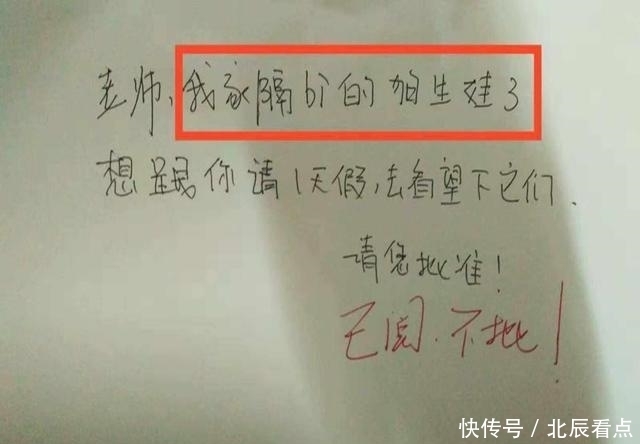 老师，我家隔bi的狗生娃了
想跟你请1天假，去看望下它们.
请您批准！
已阅.不批！
快传号／北辰看点